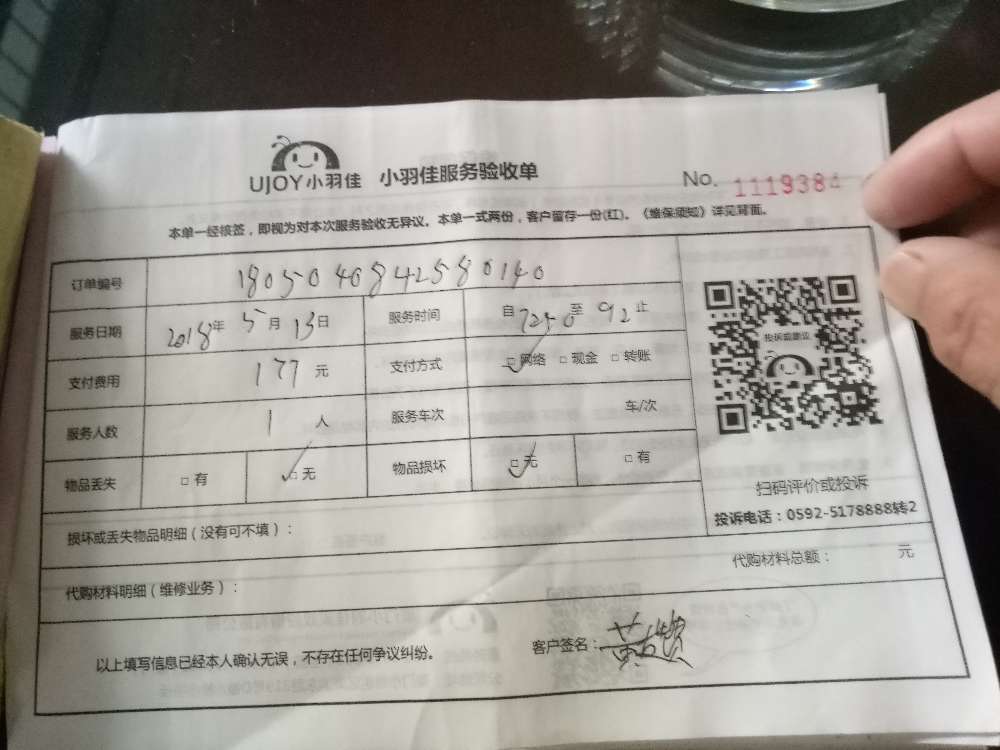 UJOY小羽佳 小羽佳服务验收单 No. 1119384
本单一经核签，即视为对本次服务验收无异议。本单一式两份，客户留存一份(红)。《维保须知》详见背面。
订单编号 1805040842580140
服务日期 2018年 5月 13日 服务时间 自 至 止
支付费用 177 元 支付方式 □网络 □现金 □转账
服务人数 1 人 服务车次 车/次
物品丢失 □有 □无 物品损坏 □无 □有
投诉或建议
扫码评价或投诉
投诉电话：0592-5178888转2
损坏或丢失物品明细（没有可不填）：
代购材料明细（维修业务）： 代购材料总额： 元
以上填写信息已经本人确认无误，不存在任何争议纠纷。 客户签名：黄